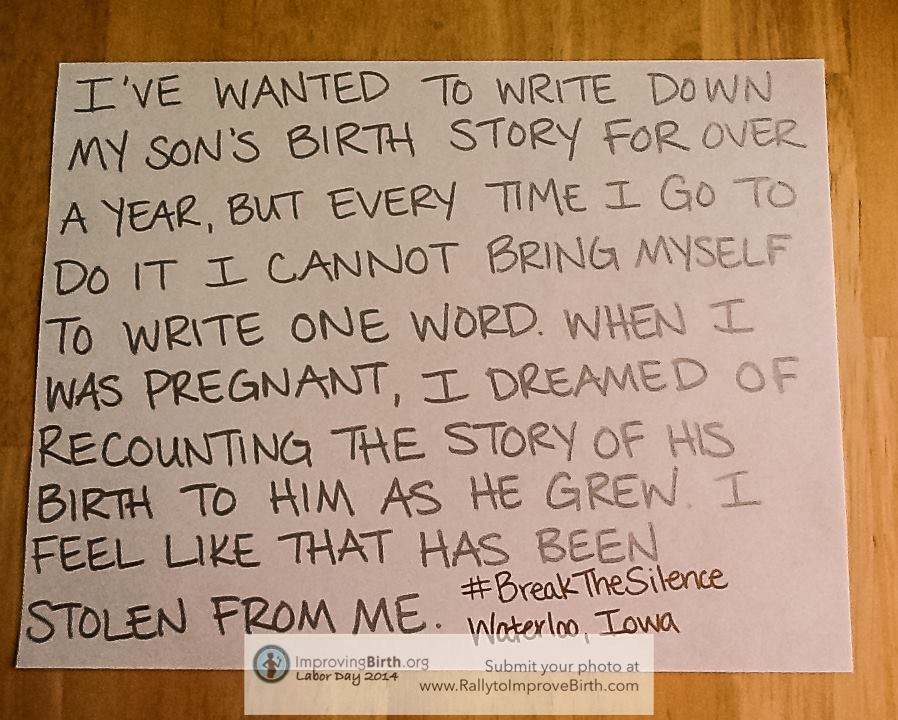 I'VE WANTED TO WRITE DOWN
MY SON'S BIRTH STORY FOR OVER
A YEAR, BUT EVERY TIME I GO TO
DO IT I CANNOT BRING MYSELF
TO WRITE ONE WORD. WHEN I
WAS PREGNANT, I DREAMED OF
RECOUNTING THE STORY OF HIS
BIRTH TO HIM AS HE GREW. I
FEEL LIKE THAT HAS BEEN
STOLEN FROM ME.
#BreakTheSilence
Waterloo, Iowa
ImprovingBirth.org
Labor Day 2014
Submit your photo at
www.RallytoImproveBirth.com